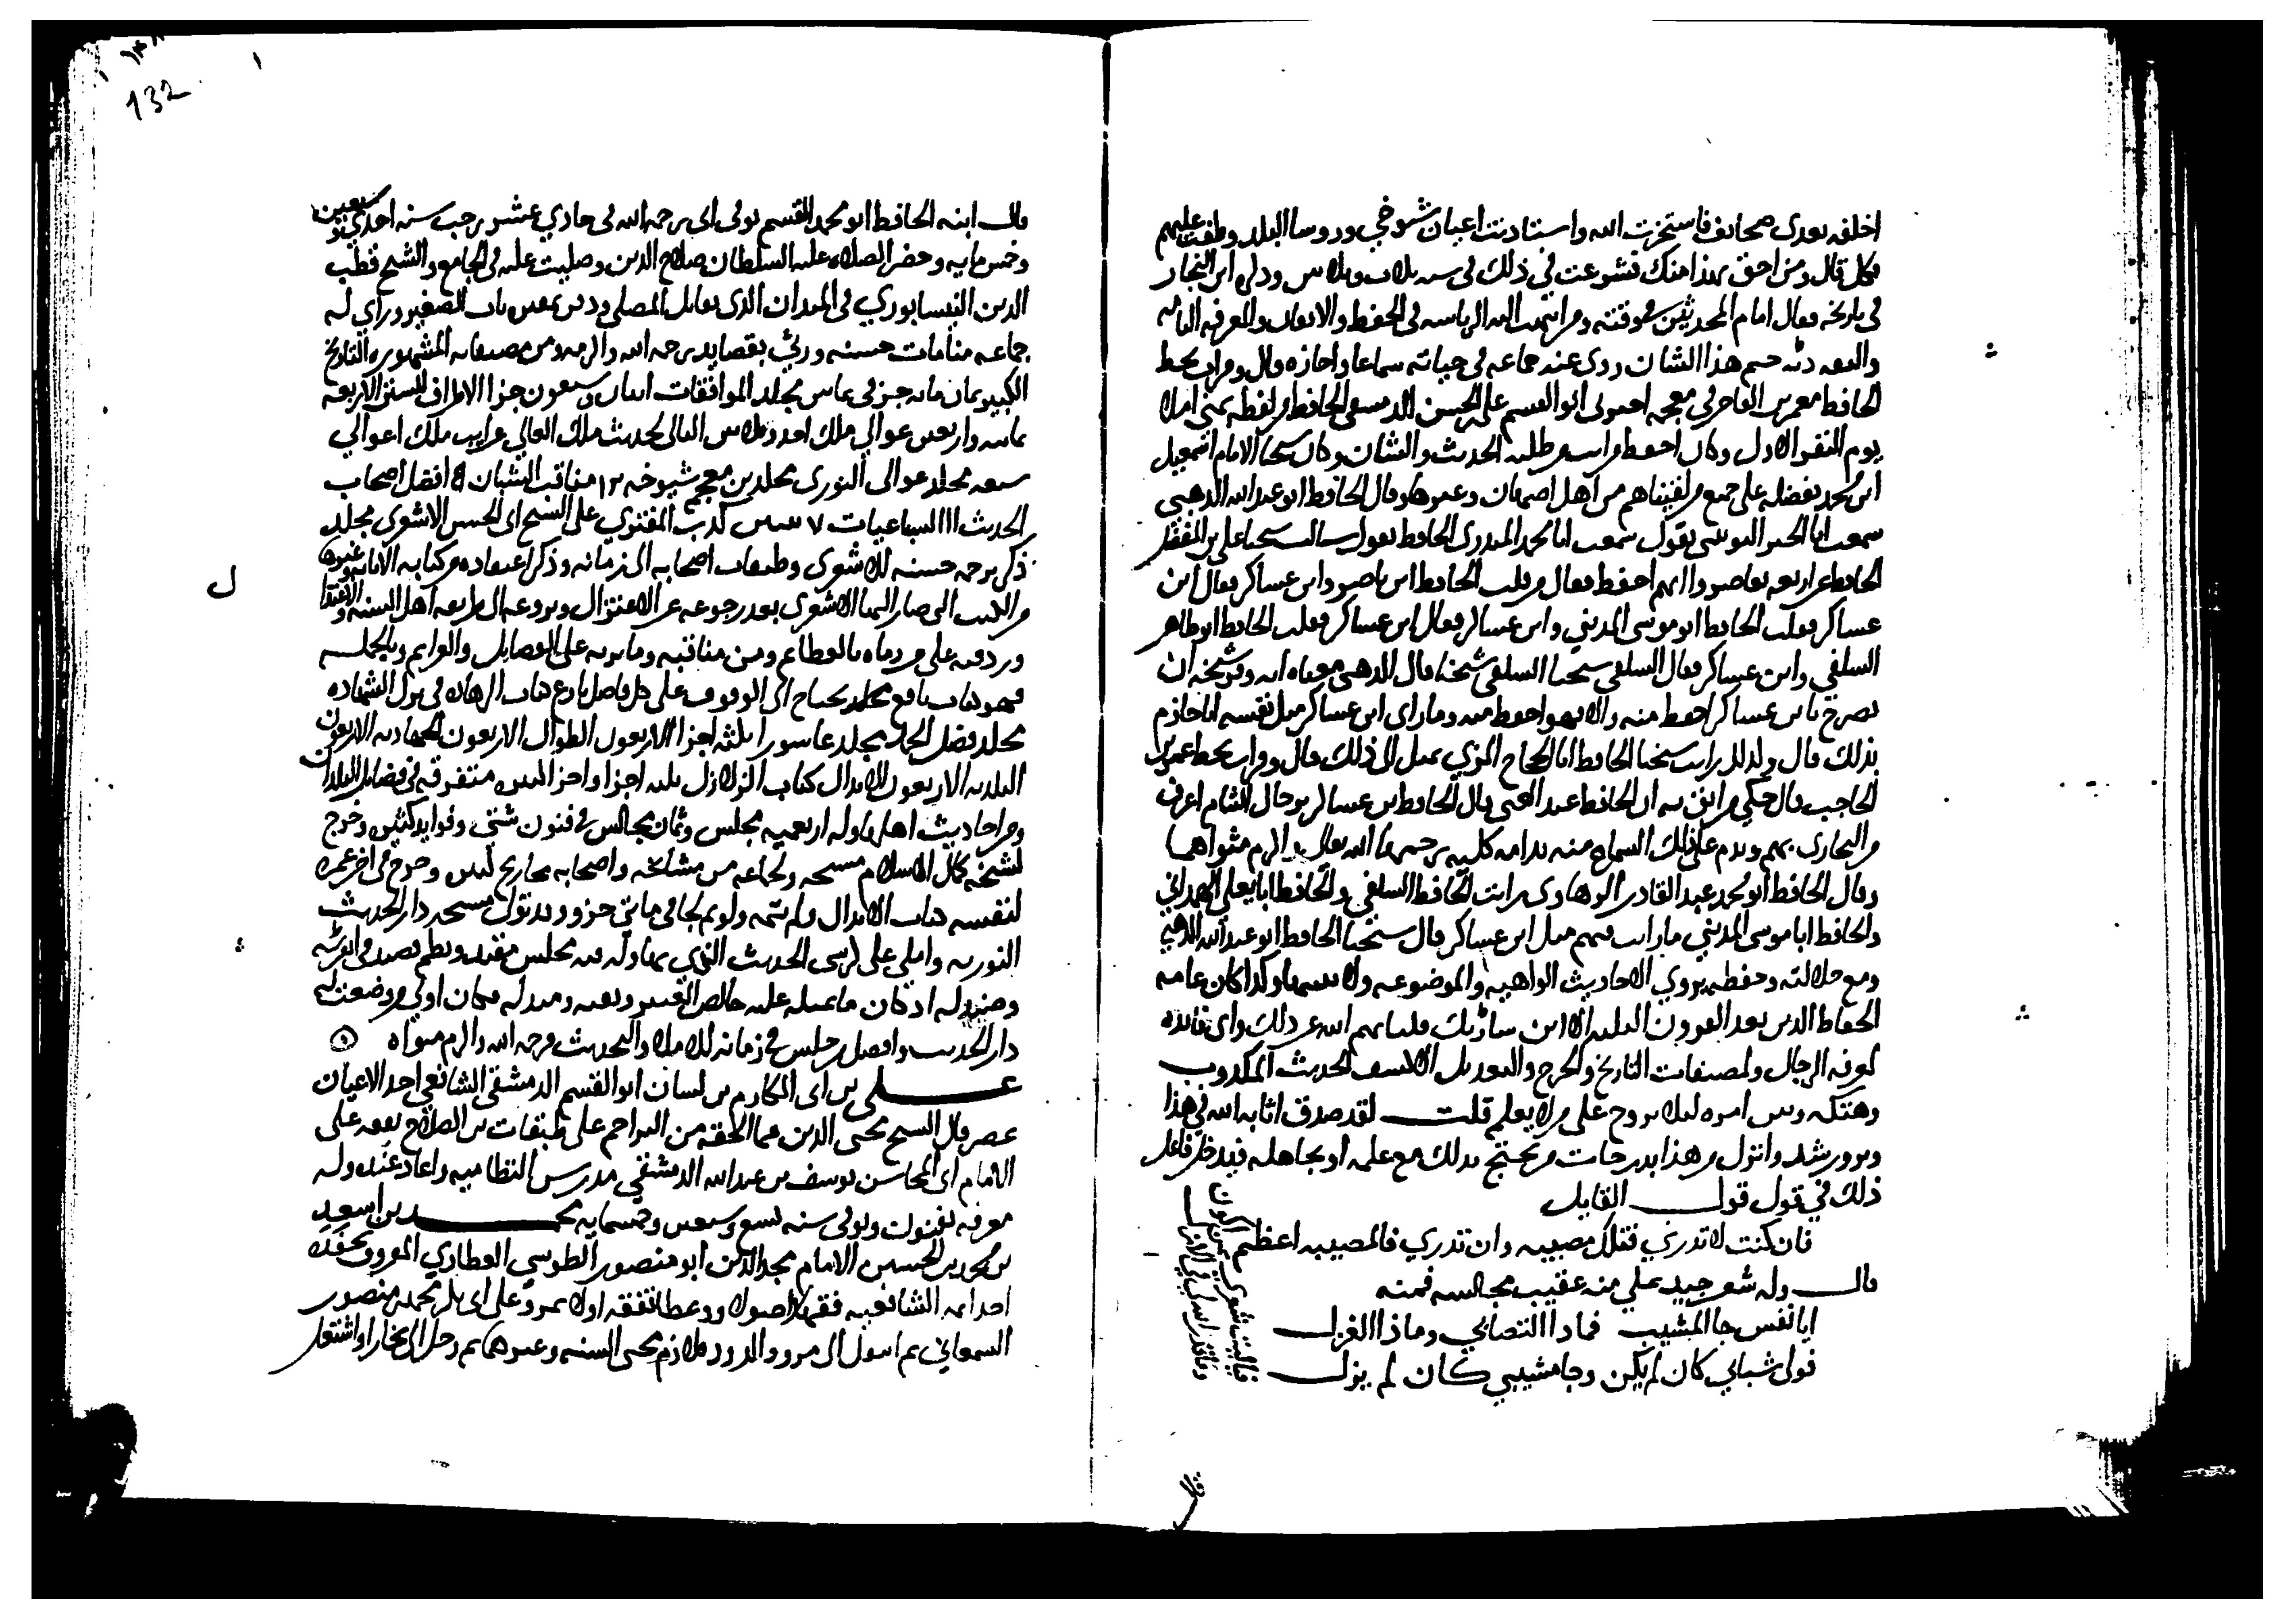 اخلفه بعدي صحايف فاستخرت الله واستاذنت اعيان شيوخي وروسا البلد وطفت عليهم
فكل قال ومن احق بهذا منك فشرعت في ذلك في سنه ثلاث وثلاثين وذكره ابن النجار
في تاريخه فقال امام المحدثين في وقته ومن انتهت اليه الرياسه في الحفظ والاتقان والمعرفه التامه
والثقه وبه ختم هذا الشان روى عنه جماعه في حياته سماعا واجازه قال وقرات بخط
الحافظ معمر بن الفاخر في معجمه اخبرني ابو القسم علي بن الحسن الدمشقي الحافظ من لفظه بمنى املا
يوم النفر الاول وكان احفظ من رايت من طلبه الحديث والشان وكان شيخنا الامام اسمعيل
ابن محمد يفضله على جميع من لقيناهم من اهل اصبهان وغيرها وقال الحافظ ابو عبد الله الذهبي
سمعت ابا الحسين اليونيني يقول سمعت ابا محمد المنذري الحافظ يقول سالت شيخنا علي بن المفضل
الحافظ عن اربعه تعاصروا ايهم احفظ فقال من قلت الحافظ ابن ناصر وابن عساكر فقال ابن
عساكر فقلت الحافظ ابو موسى المديني وابن عساكر فقال ابن عساكر فقلت الحافظ ابو طاهر
السلفي وابن عساكر فقال السلفي شيخنا السلفي شيخنا قال الذهبي معناه انه وقر شيخه ان
يصرح بان ابن عساكر احفظ منه والا فهو احفظ منه وما راى ابن عساكر مثل نفسه انا جازم
بذلك قال وكذلك رايت شيخنا الحافظ ابا الحجاج المزي يميل الى ذلك قال وقرات بخط عمر بن
الحاجب قال حكي لي من اثق به ان الحافظ عبد الغني قال الحافظ ابن عساكر برجال الشام اعرف
من البخاري بهم وندم على ترك السماع منه ندامه كليه رحمهما الله تعالى واكرم مثواهما
وقال الحافظ ابو محمد عبد القادر الرهاوي رايت الحافظ السلفي والحافظ ابا يعلى الهمداني
والحافظ ابا موسى المديني ما رايت فيهم مثل ابن عساكر قال شيخنا الحافظ ابو عبد الله الذهبي
ومع جلالته وحفظه يروي الاحاديث الواهيه والموضوعه ولا يبينها وكذا كان عامه
الحفاظ الذين بعد القرون الثلثه الا من شا ربك فليسالنهم الله عن ذلك واي فايده
لمعرفه الرجال ولمصنفات التاريخ والجرح والتعديل الا كشف الحديث المكذوب
وهتكه وتبين امره ليلا يروج على من لا يعلم قلت لقد صدق اثابه الله في هذا
وبر ورشد وانزل من هذا بدرجات من يحتج بذلك مع علمه او بجاهله فيدخل فاعل
ذلك في قول قول القايل
فان كنت لا تدري فتلك مصيبه وان تدري فالمصيبه اعظم
قال وله شعر جيد يملي منه عقيب مجالسه فمنه
ايا نفس جا المشيب فماذا التصابي وماذا الغزل
تولى شبابي كان لم يكن وجا مشيبي كان لم يزل
فيا ليت شعري ممن اكون
وما قدر الله لي في الازل
132
قال ابنه الحافظ ابو محمد القسم توفي ابي رحمه الله في حادي عشر رجب سنه احدى وسبعين
وخمس مايه وحضر الصلاه عليه السلطان صلاح الدين وصليت عليه في الجامع والشيخ قطب
الدين النيسابوري في الميدان الذي يقابل المصلى ودفن بمقبره باب الصغير وراي له
جماعه منامات حسنه ورثي بقصايد رحمه الله واكرمه ومن مصنفاته المشهوره التاريخ
الكبير ثمان مايه جز في ثمانين مجلد الموافقات اثنان وسبعون جزا الاطراف للسنن الاربعه
ثمانيه واربعين عوالي ملك احد وثلاثين التالي لحديث ملك العالي غرايب ملك اعوالي
سبعه مجلد عوالي الثوري مجلد من معجم شيوخه ١٢ مناقب الشبان ١٥ فضل اصحاب
الحديث ١١ السباعيات ٧ تبيين كذب المفتري على الشيخ ابي الحسن الاشعري مجلد
ذكر ترجمه حسنه للاشعري وطبقات اصحابه الى زمانه وذكر اعتقاده من كتابه الابانه وغيرها
من الكتب التي صار اليها الاشعري بعد رجوعه عن الاعتزال ونزوعه الى طريقه اهل السنه والاقتدا
ورد فيه على من رماه بالعظايم ومن مناقبه وما يربه على الفضايل والمكارم وبالجمله
فهو كتاب نافع مجلد يحتاج الى الوقوف على كل فاضل بارع كتاب الزهاده في بذل الشهاده
مجلد فضل الجمعه مجلد عاشورا ثلثه اجزا الاربعون الطوال الاربعون الجهاديه الاربعون
البلديه الاربعون الابدال كتاب الزلازل ثلثه اجزا واجزا كثيره متفرقه في فضايل البلدان
ومن احاديث اهلها وله اربعميه مجلس وثمان مجالس في فنون شتى وفوايد كثيره وخرج
لشيخه كمال الاسلام مشيخه ولجماعه من مشايخه واصحابه تخاريج كثيره وخرج في اخر عمره
لنفسه كتاب الابدال ولم يتمه ولو تم لجا في مايتي جزو وقد تولى مشيخه دار الحديث
النوريه واملى على كرسي الحديث الذي بها وله فيه مجلس مفيد ونظم قصيده في ابوابه
دار الحديث وافضل من جلس في زمانه للاملا والتحديث فرحمه الله واكرم مثواه
علي بن ابي المكارم بن فتيان ابو القسم الدمشقي الشافعي احد الاعيان
عصر قال الشيخ محيى الدين مما الحقه من التراجم على طبقات بن الصلاح تفقه على
الامام ابي المحاسن يوسف بن عبد الله الدمشقي مدرس النظاميه واعاد عنده وله
معرفه بفنون وتوفي سنه تسع وسبعين وخمسمايه محمد بن اسعد
بن محمد بن الحسين الامام مجد الدين ابو منصور الطوسي العطاري المعروف بحفده
احد ايمه الشافعيه فقها واصولا ووعظا تفقه اولا بمرو على ابي بكر محمد بن منصور
السمعاني ثم انتقل الى مرو الروذ فلازم محيي السنه وغيرهما ثم رحل الى بخارا واشتغل